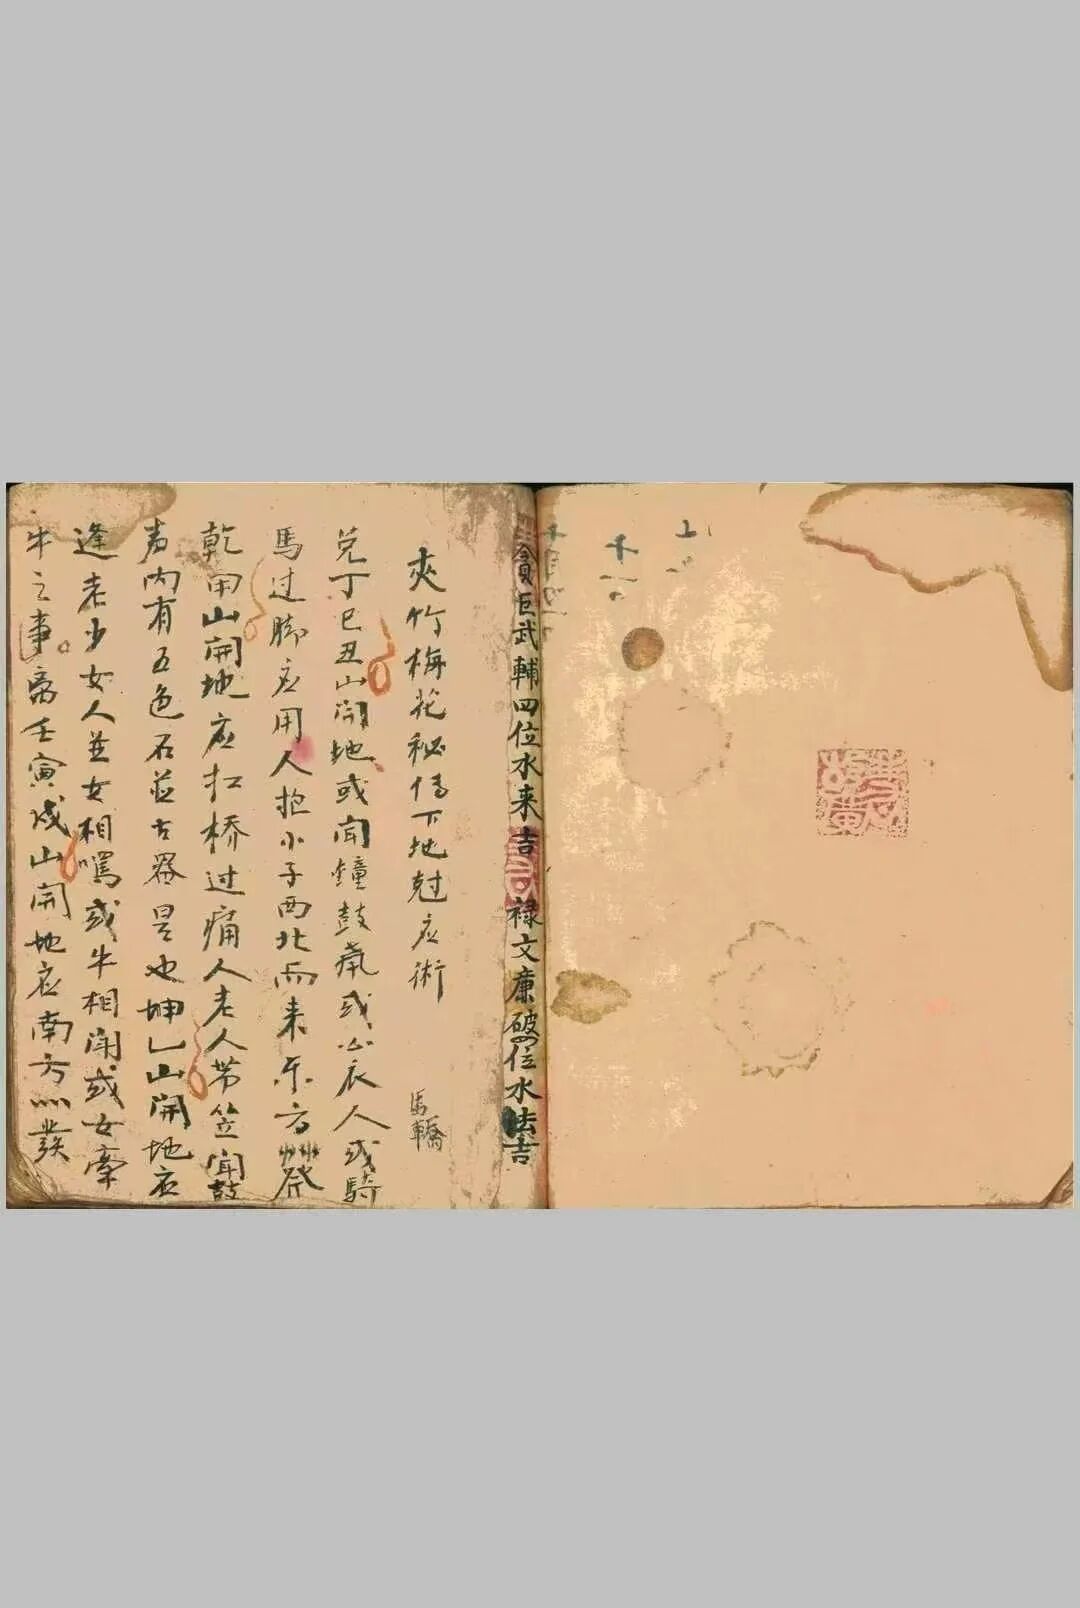 貪巨武輔四位水来吉 禄文廉破四位水法吉
夾竹梅花秘傳下地尅应術
馬轎
兌丁巳丑山開地或聞鐘鼓或衣人或騎
馬过脚应用人抱小子西北而来东方發
乾甲山開地应扛桥过痛人老人带笠聞鼓
声内有五色石並古器是也坤乚山開地应
逢老少女人並女相罵或牛相鬪或女牽
牛之事离壬寅戌山開地应南方發